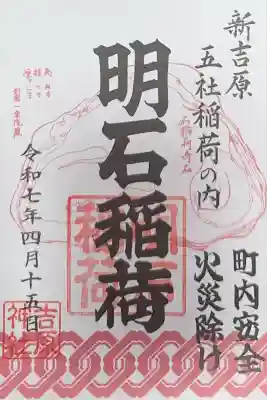 新吉原
五社稲荷の内
町内安全
火災除け
明石稲荷
令和七年四月十五日
明石
稲荷
吉原
神社